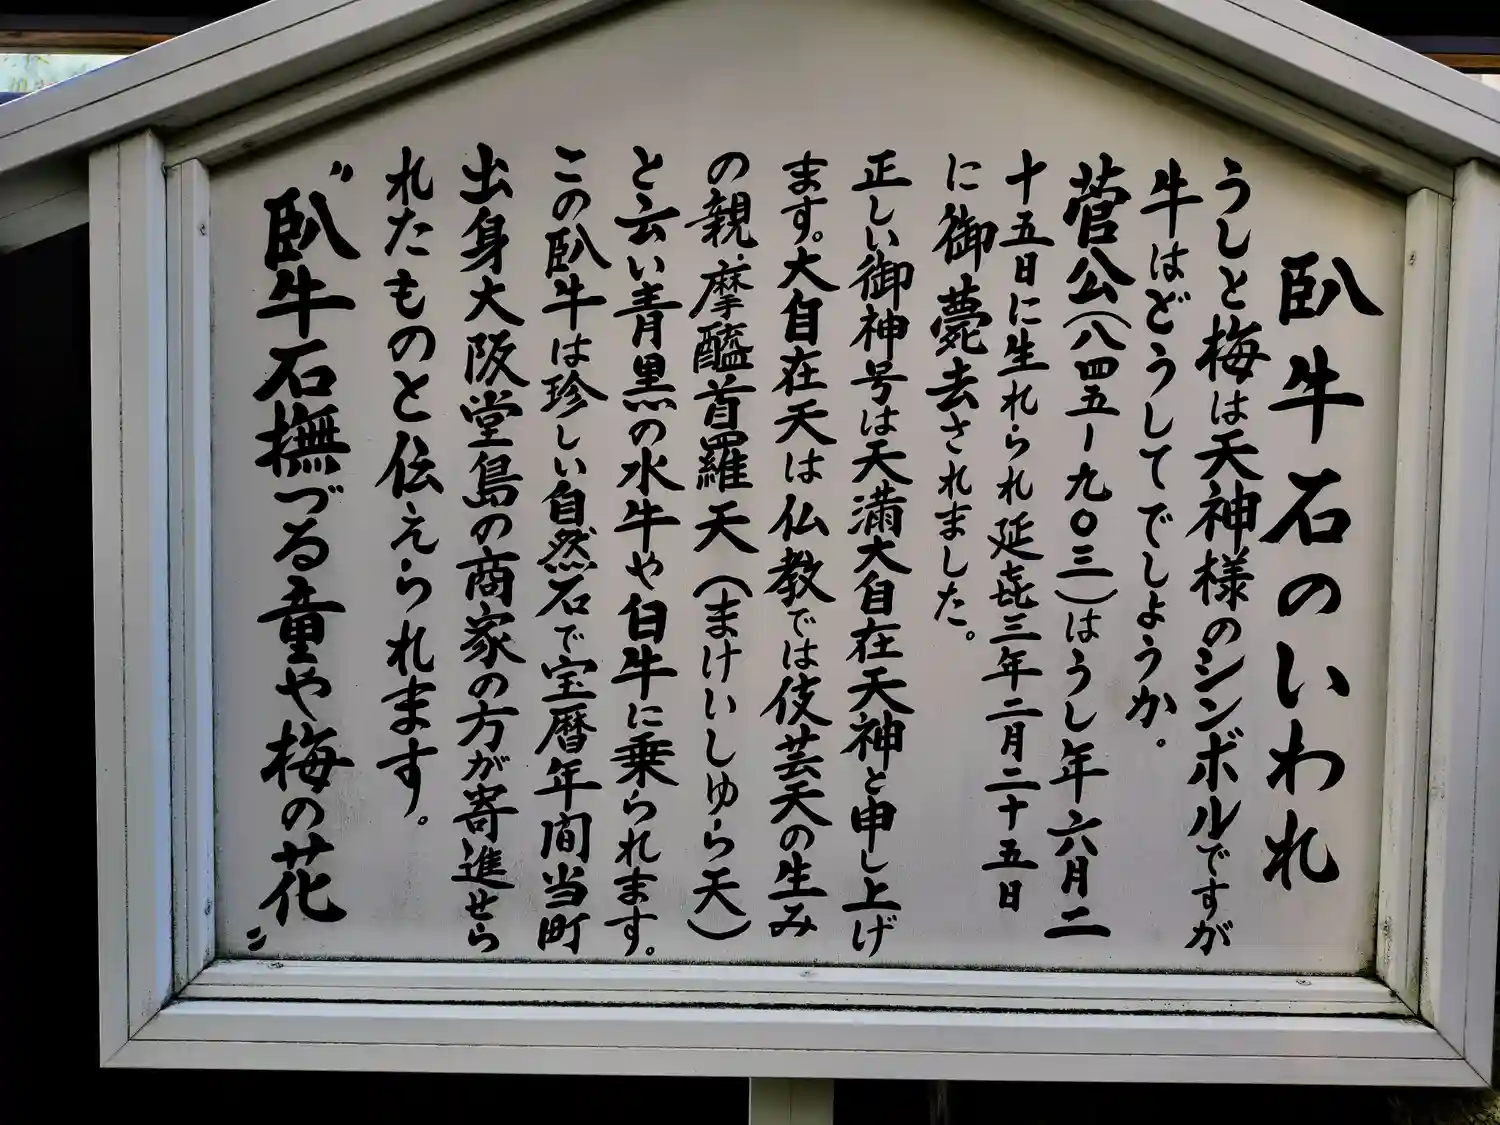 臥牛石のいわれ
うしと梅は天神様のシンボルですが
牛はどうしてでしょうか。
菅公(八四五ー九〇三)はうし年六月二
十五日に生れられ延㐂三年二月二十五日
に御薨去されました。
正しい御神号は天満大自在天神と申し上げ
ます。大自在天は仏教では伎芸天の生み
の親.摩醯首羅天(まけいしゆら天)
と云い青黒の水牛や白牛に乗られます。
この臥牛は珍しい自然石で宝暦年间当町
出身大阪堂島の商家の方が寄進せら
れたものと伝えられます。
〝臥牛石撫づる童や梅の花〟